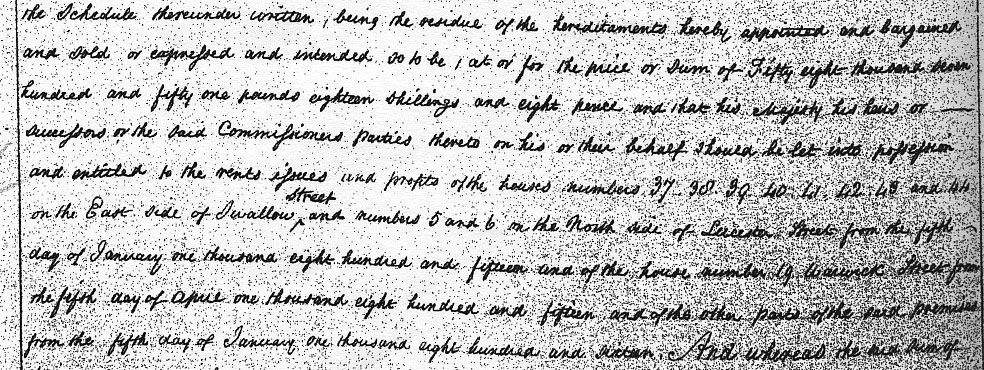 the Schedule thereunder written, being the residue of the hereditaments hereby appointed and bargained
and sold or expressed and intended so to be, at or for the price or Sum of Fifty eight thousand seven
hundred and fifty one pounds eighteen shillings and eight pence and that his Majesty his heirs or —
successors or the said Commissioners parties thereto on his or their behalf should be let into possession
and entitled to the rents issues and profits of the houses numbers 37. 38. 39. 40. 41. 42. 43 and 44
on the East side of Swallow Street and numbers 5 and 6 on the North side of Leicester Street from the fifth
day of January one thousand eight hundred and fifteen and of the house number 19 Warwick Street from
the fifth day of April one thousand eight hundred and fifteen and of the other parts of the said premises
from the fifth day of January one thousand eight hundred and sixteen. And whereas the said Sum of